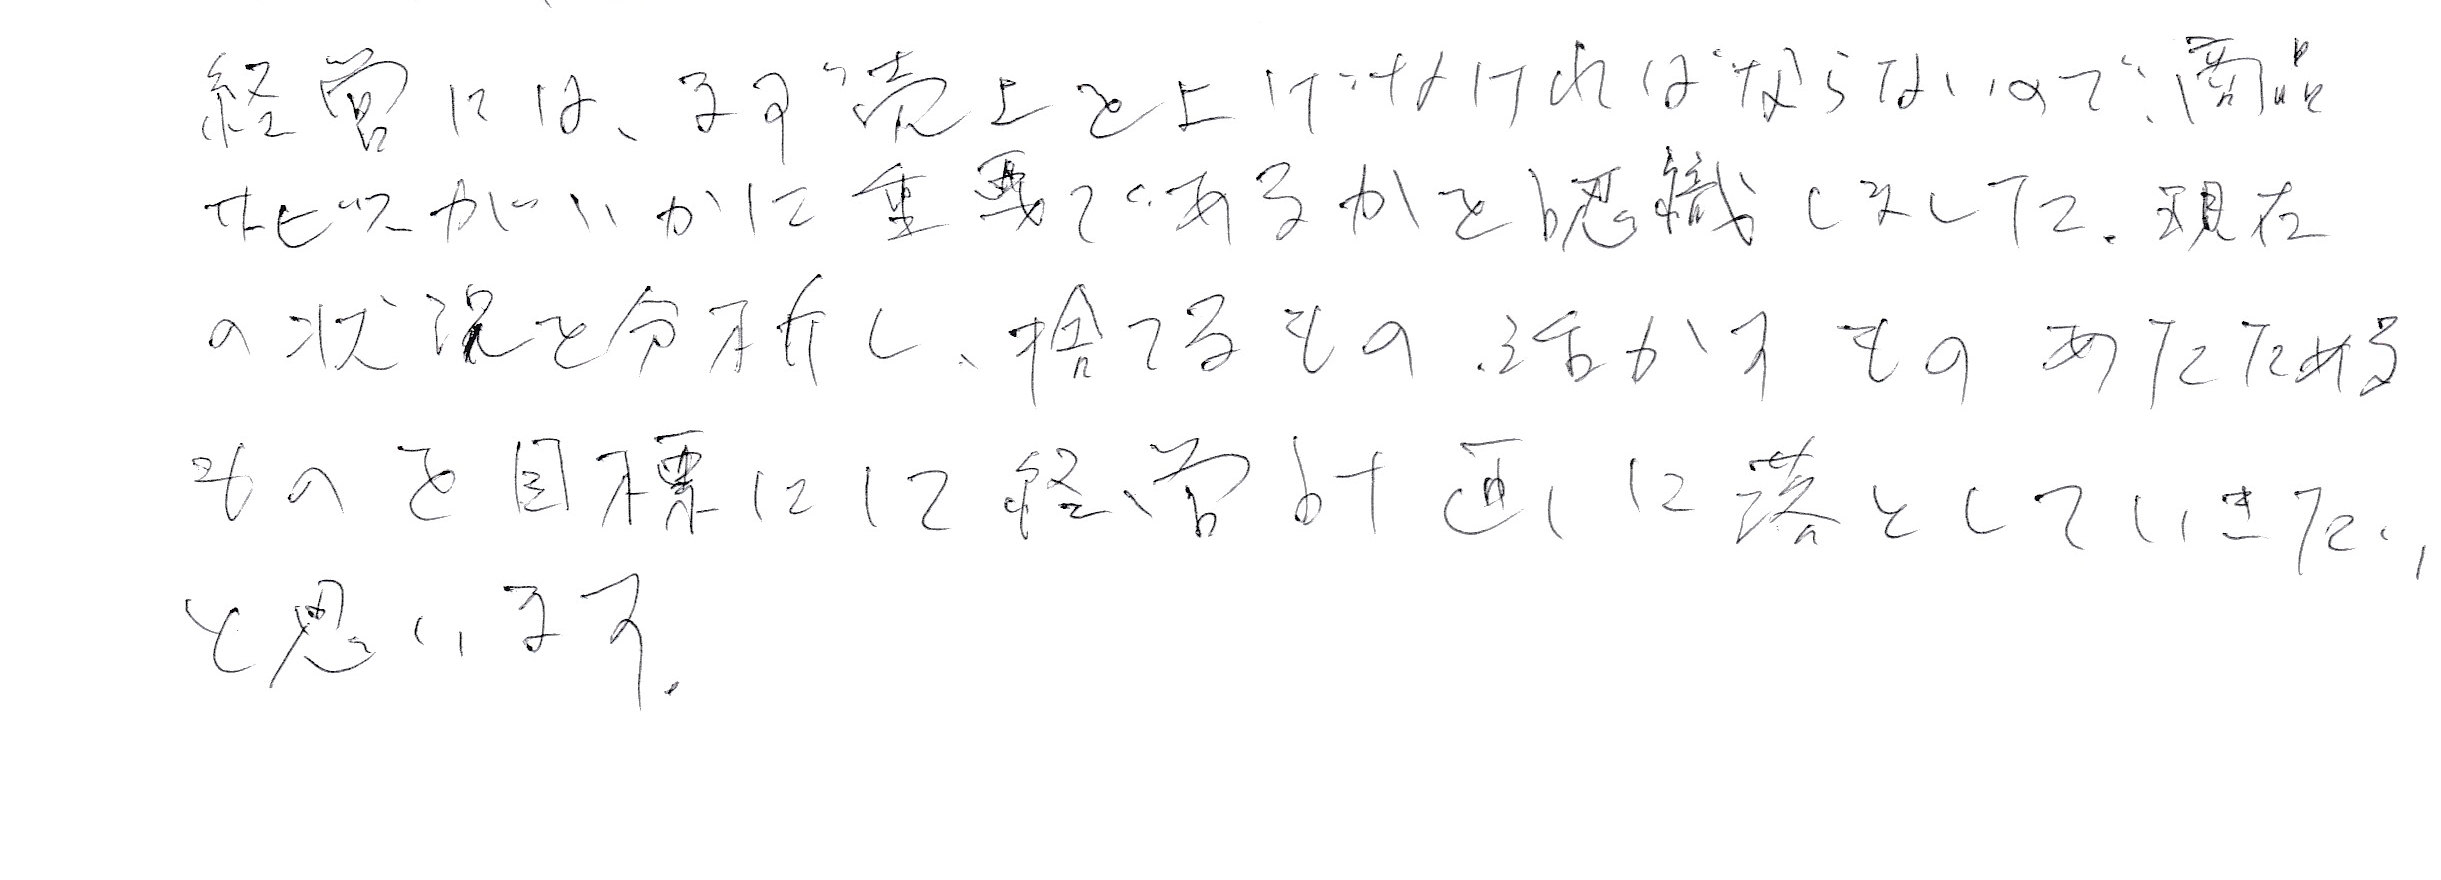 経営には、まず売上を上げなければならないので、商品
サービスがいかに重要であるかを認識しました。現在
の状況を分析し、捨てるもの、活かすもの あたためる
ものを目標にして経営計画に落としていきたい
と思います。